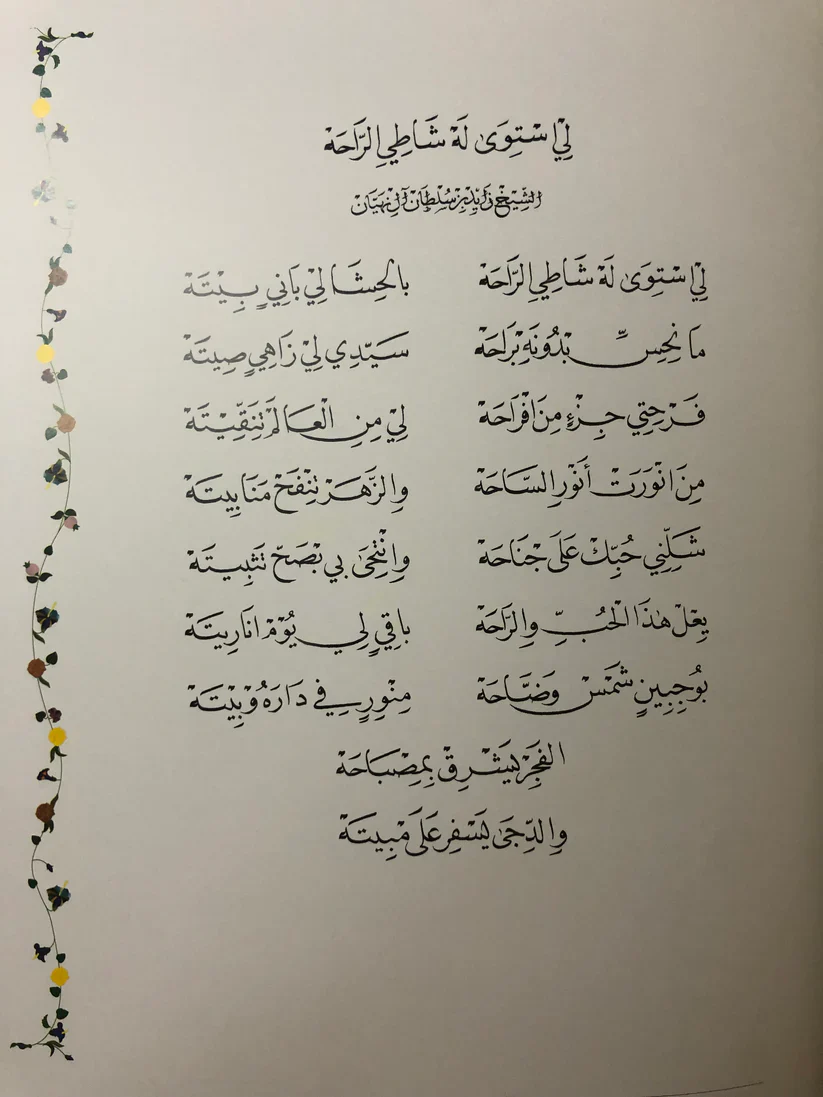 لِيْ اسْتِوَىٰ لَهْ شَاطِي الرَّاحَهْ
الشَّيْخ زَايِد بِنْ سُلْطَان آل نَهَيَان
لِيْ اسْتِوَىٰ لَهْ شَاطِي الرَّاحَهْ بالحِشَا لِيْ بَانِي بِيْتَهْ
مَا نِحِسِّ بْدُونَهْ بْرَاحَهْ سَيِّدِي لِيْ زَاهِي صِيتَهْ
فَرْحِتِي جِزْءٍ مِنَ افْرَاحَهْ لِيْ مِنِ الْعَالَمْ تِنَقِّيْتَهْ
مِنَ انْوَرَتْ أَنْوَرِ السَّاحَهْ وِالزَّهَرْ تِنْفَحْ مَنَابِيتَهْ
شَلِّنِي حُبِّكْ عَلَىٰ جْنَاحَهْ وِانْتِحَىٰ بي بْصَحّ تَثْبِيتَهْ
يِعْلْ هٰذَا الْحُبِّ وِالرَّاحَهْ باقِيٍ لِي يُوْمْ انَا رِيتَهْ
بُوجِبِينٍ شَمْسْ وَضَّاحَهْ مِنْوِرٍ فِي دَارَهْ وْبِيْتَهْ
الفَجِرْ يَشْرِقْ بِمِصْبَاحَهْ
وِالدِّجَىٰ يَسْفِر عَلَىٰ مْبِيتَهْ